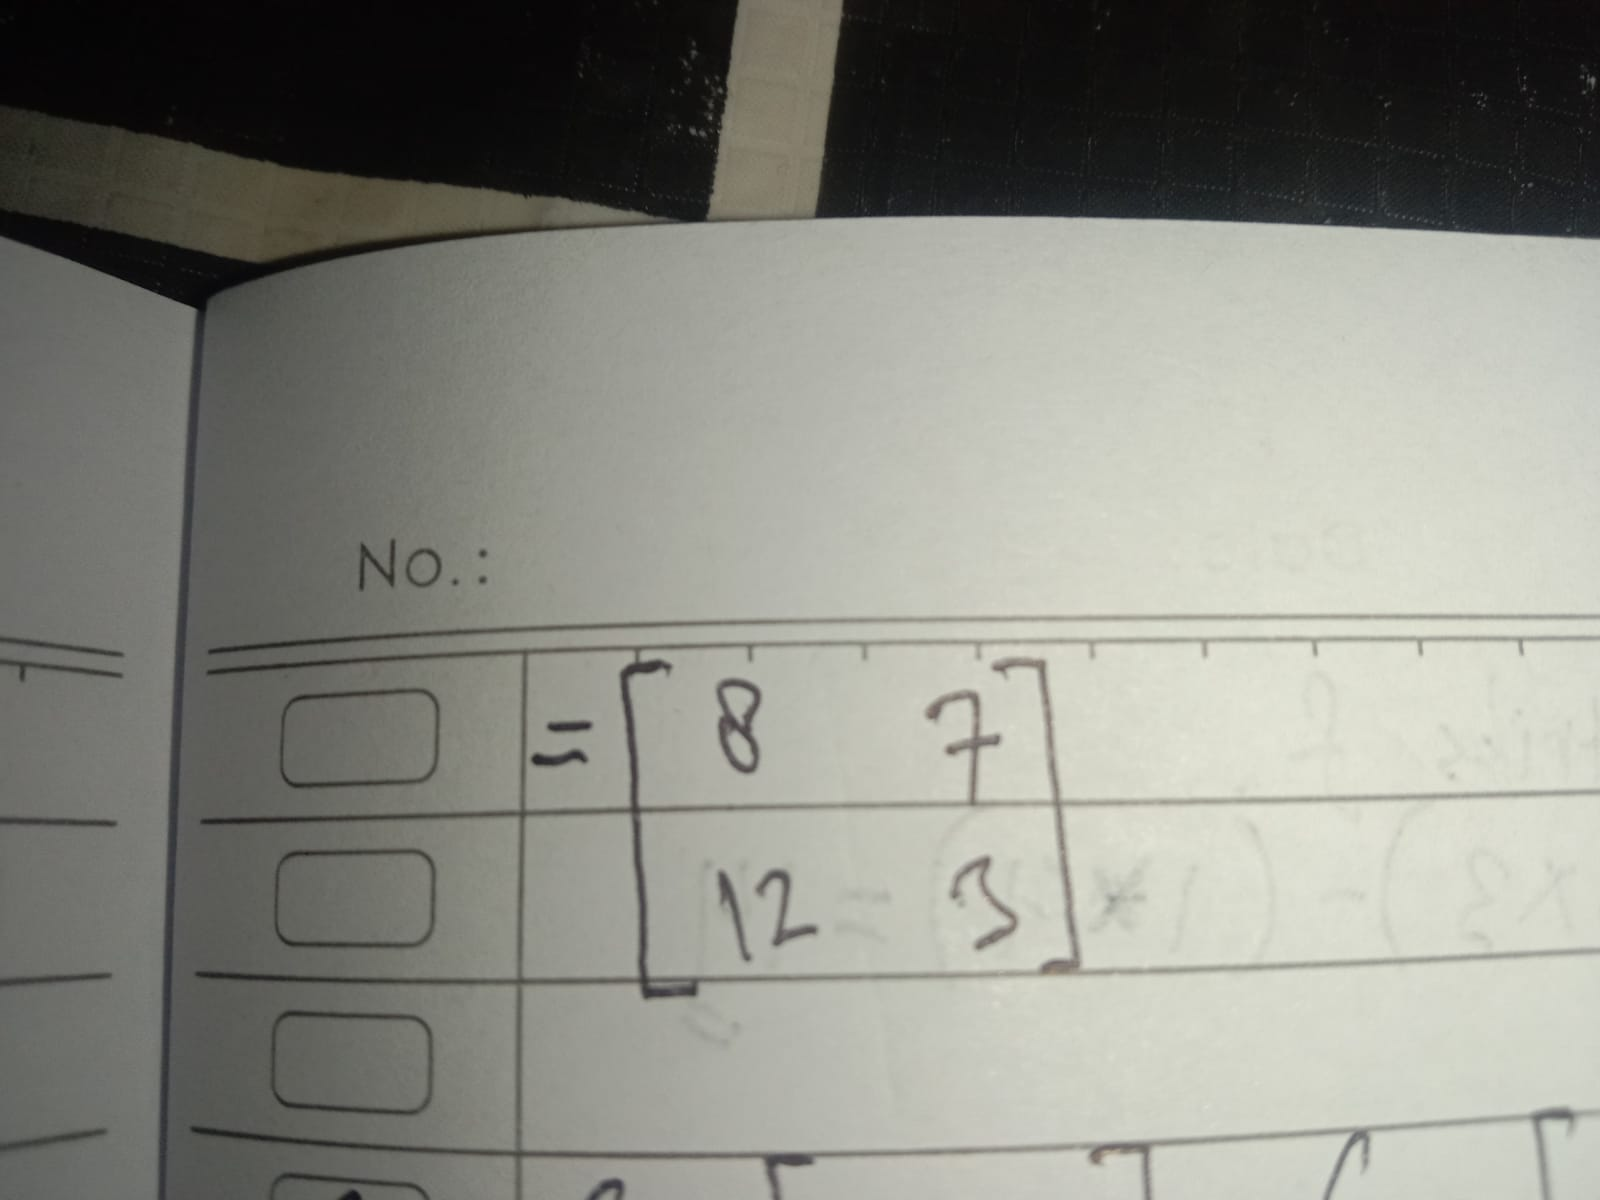 No.:
= [ 8 7
12 3 ]